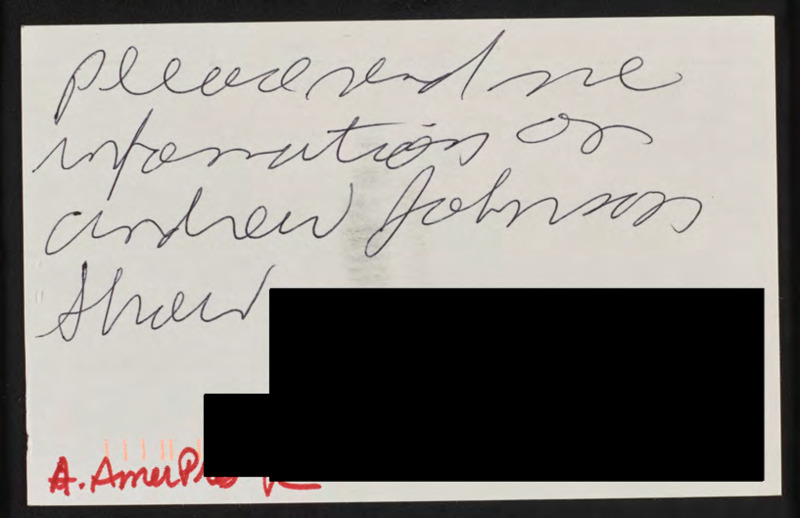 please send me
information on
andrew Johnson
show
A. Amer Pres